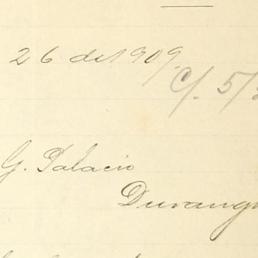 26 de 1909.
C/. 5/
G. Palacio
Durang